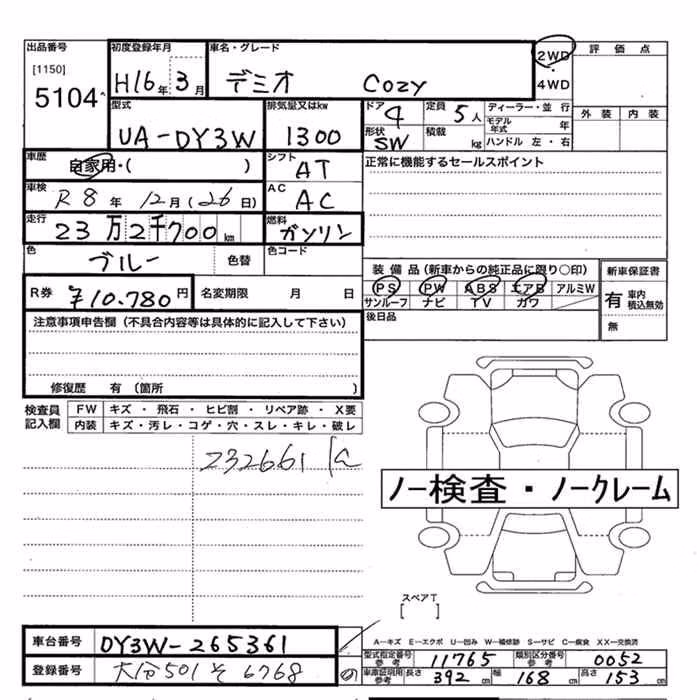 出品番号 初度登録年月 車名・グレード 2WD 評価点
[1150] H16年3月 デミオ Cozy ・
5104 4WD
型式 排気量又はkw ドア 4 定員 5人 ディーラー・並行 外装 内装
UA-DY3W 1300 形状 SW 積載 kg モデル年式 年
ハンドル 左・右
車歴 自家用・( ) シフト AT 正常に機能するセールスポイント
車検 R8年 12月(26日) AC AC
走行 23万2千700km 燃料 ガソリン
色 ブルー 色替 色コード
装備品(新車からの純正品に限り○印) 新車保証書
R券 ¥10.780円 名変期限 月 日 PS PW ABS エアB アルミW 有 車内積込無効
サンルーフ ナビ TV カワ
注意事項申告欄(不具合内容等は具体的に記入して下さい) 後日品 無
修復歴 有(箇所 )
検査員記入欄 FW キズ・飛石・ヒビ割・リペア跡・X要
内装 キズ・汚レ・コゲ・穴・スレ・キレ・破レ
232661
ノー検査・ノークレーム
スペアT
[ ]
車台番号 DY3W-265361 A-キズ E-エクボ U-凹み W-補修跡 S-サビ C-腐食 XX-交換済
型式指定番号 参考 11765 類別区分番号 参考 0052
登録番号 大分501そ6768 の 車庫証明用 参考 長さ 392cm 幅 168cm 高さ 153cm